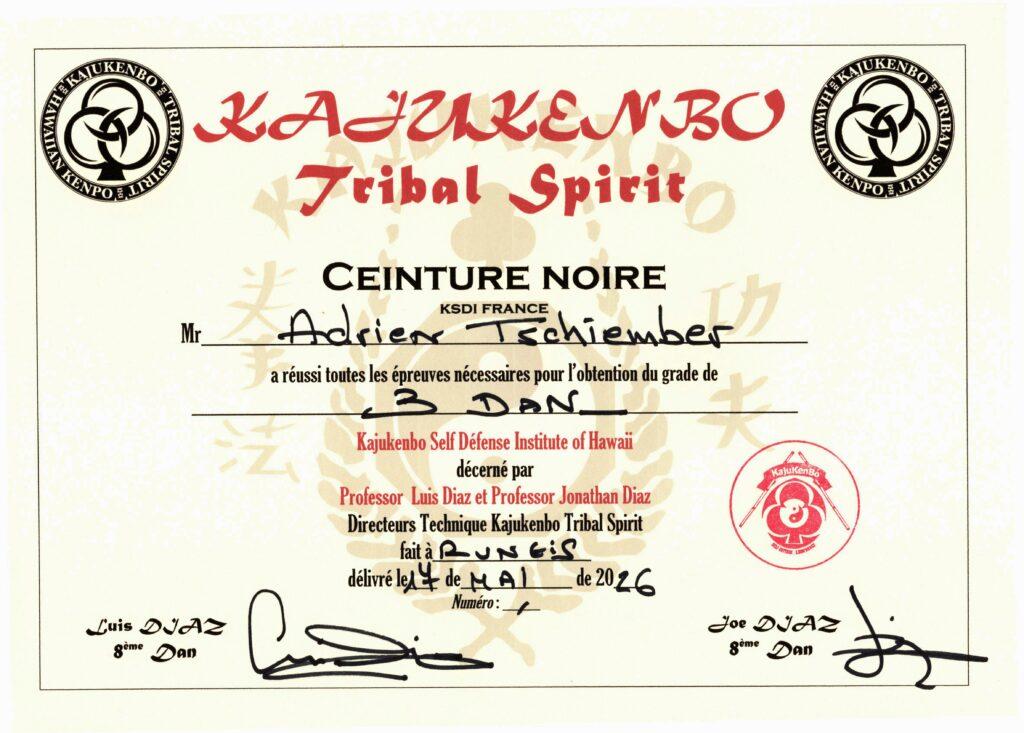 KAJUKENBO
Tribal Spirit
HAWAIIAN KENPO KAJUKENBO TRIBAL SPIRIT
HAWAIIAN KENPO KAJUKENBO TRIBAL SPIRIT
KAJUKENBO
CEINTURE NOIRE
KSDI FRANCE
Mr Adrien Tschiember
a réussi toutes les épreuves nécessaires pour l'obtention du grade de
3 DAN
拳法
功夫
Kajukenbo Self Défense Institute of Hawaii
décerné par
Professor Luis Diaz et Professor Jonathan Diaz
Directeurs Technique Kajukenbo Tribal Spirit
KaJuKenBo
fait à RUNGIS
délivré le 17 de MAI de 2026
Numéro :
Luis DIAZ
8ème Dan
Joe DIAZ
8ème Dan